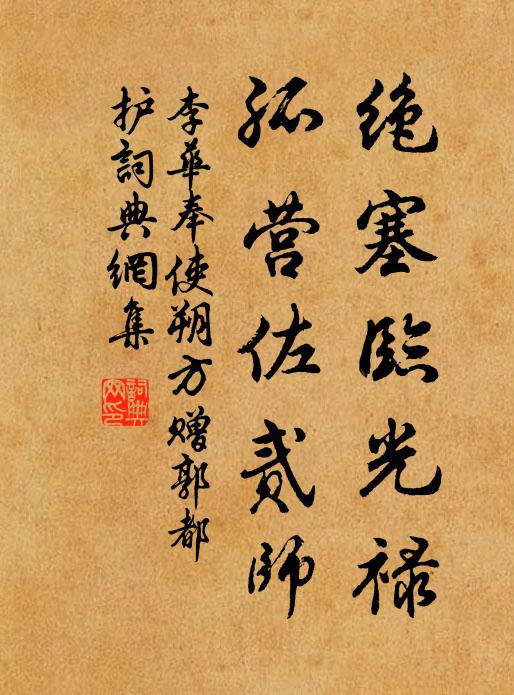 绝塞临光禄
孤营佐贰师
李华奉使朔方赠郭都
护詞典網集
詞典網印